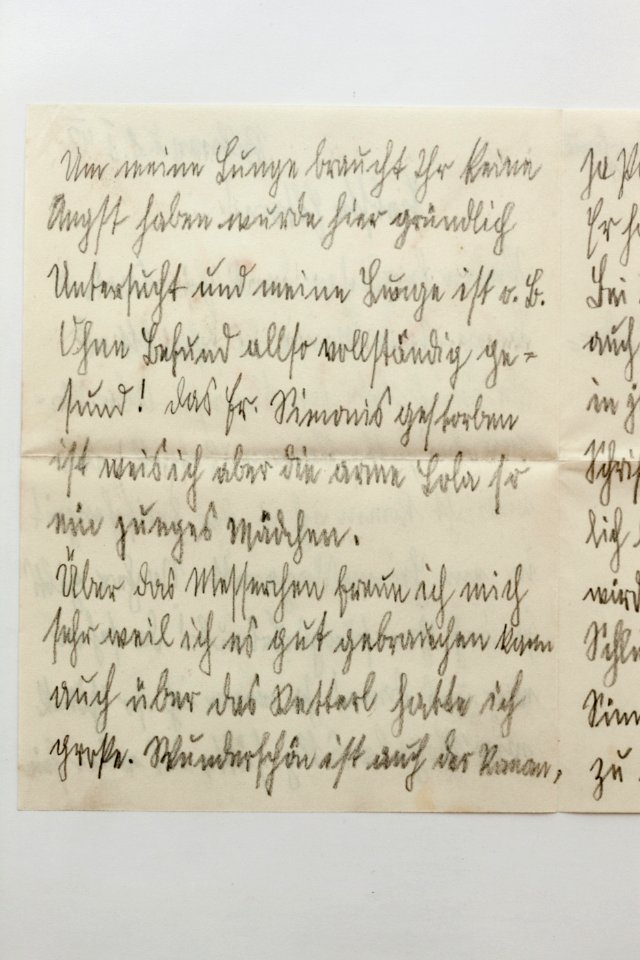 Um meine Lunge braucht Ihr keine
Angst haben wurde hier gründlich
Untersucht und meine Lunge ist o. B.
Ohne Befund allso vollständig ge-
sund! Das Fr. Simonis gestorben
ist weis ich aber die arme Lola so
ein junges Mädchen.
Über das Messerchen freue ich mich
sehr weil ich es gut gebrauchen kann
auch über das hatte ich
große. Wunderschön ist auch der
Er
Bei
auch
in
lich
wird
zu